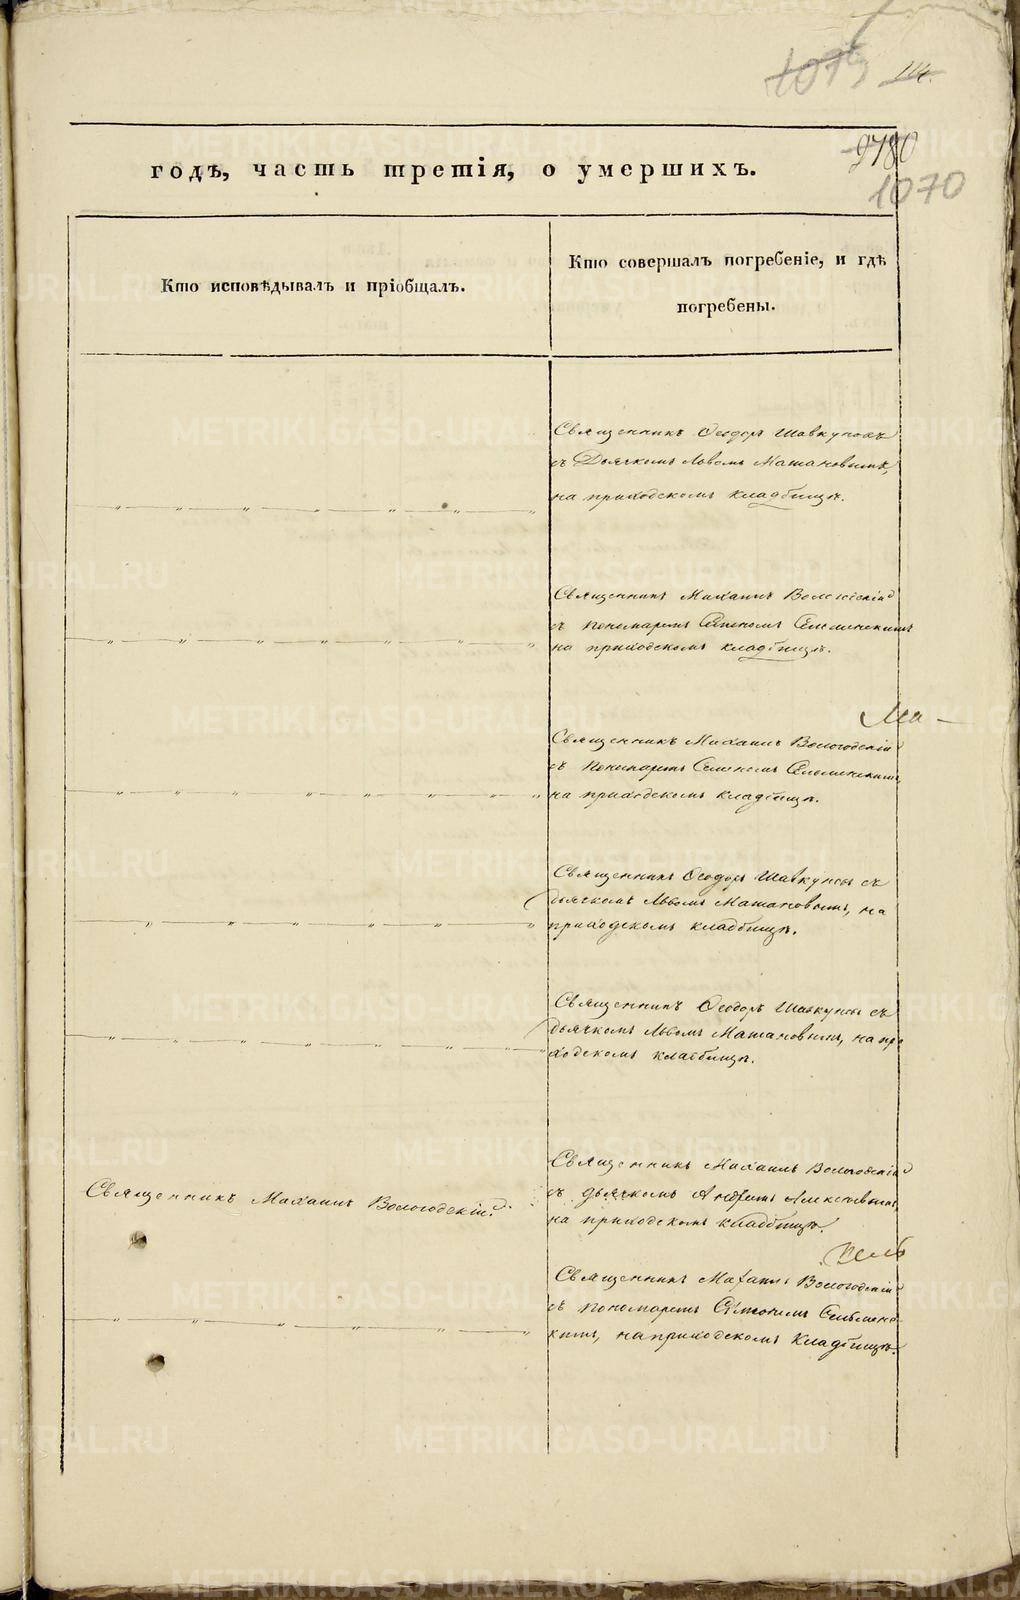 1075 114.
9780
годѣ, часть третія, о умершихъ.
1070
Кто исповѣдывалъ и пріобщалъ.
Кто совершалъ погребеніе, и гдѣ
погребены.
Священникъ Ѳеодоръ Шавкуновъ
съ Дьячкомъ Львомъ Машановымъ,
на приходскомъ кладбищѣ.
Священникъ Михаилъ Вологодскій
съ пономаремъ
на приходскомъ кладбищѣ.
Ма-
Священникъ Михаилъ Вологодскій
съ пономаремъ
на приходскомъ кладбищѣ.
Священникъ Ѳеодоръ Шавкуновъ съ
дьячкомъ Львомъ Машановымъ, на
приходскомъ кладбищѣ.
Священникъ Ѳеодоръ Шавкуновъ съ
дьячкомъ Львомъ Машановымъ, на при
ходскомъ кладбищѣ.
Священникъ Михаилъ Вологодскій.
Священникъ Михаилъ Вологодскій
съ дьячкомъ
на приходскомъ кладбищѣ.
Священникъ Михаилъ Вологодскій
съ пономаремъ
кимъ, на приходскомъ кладбищѣ.
METRIKI.GASO-URAL.RU